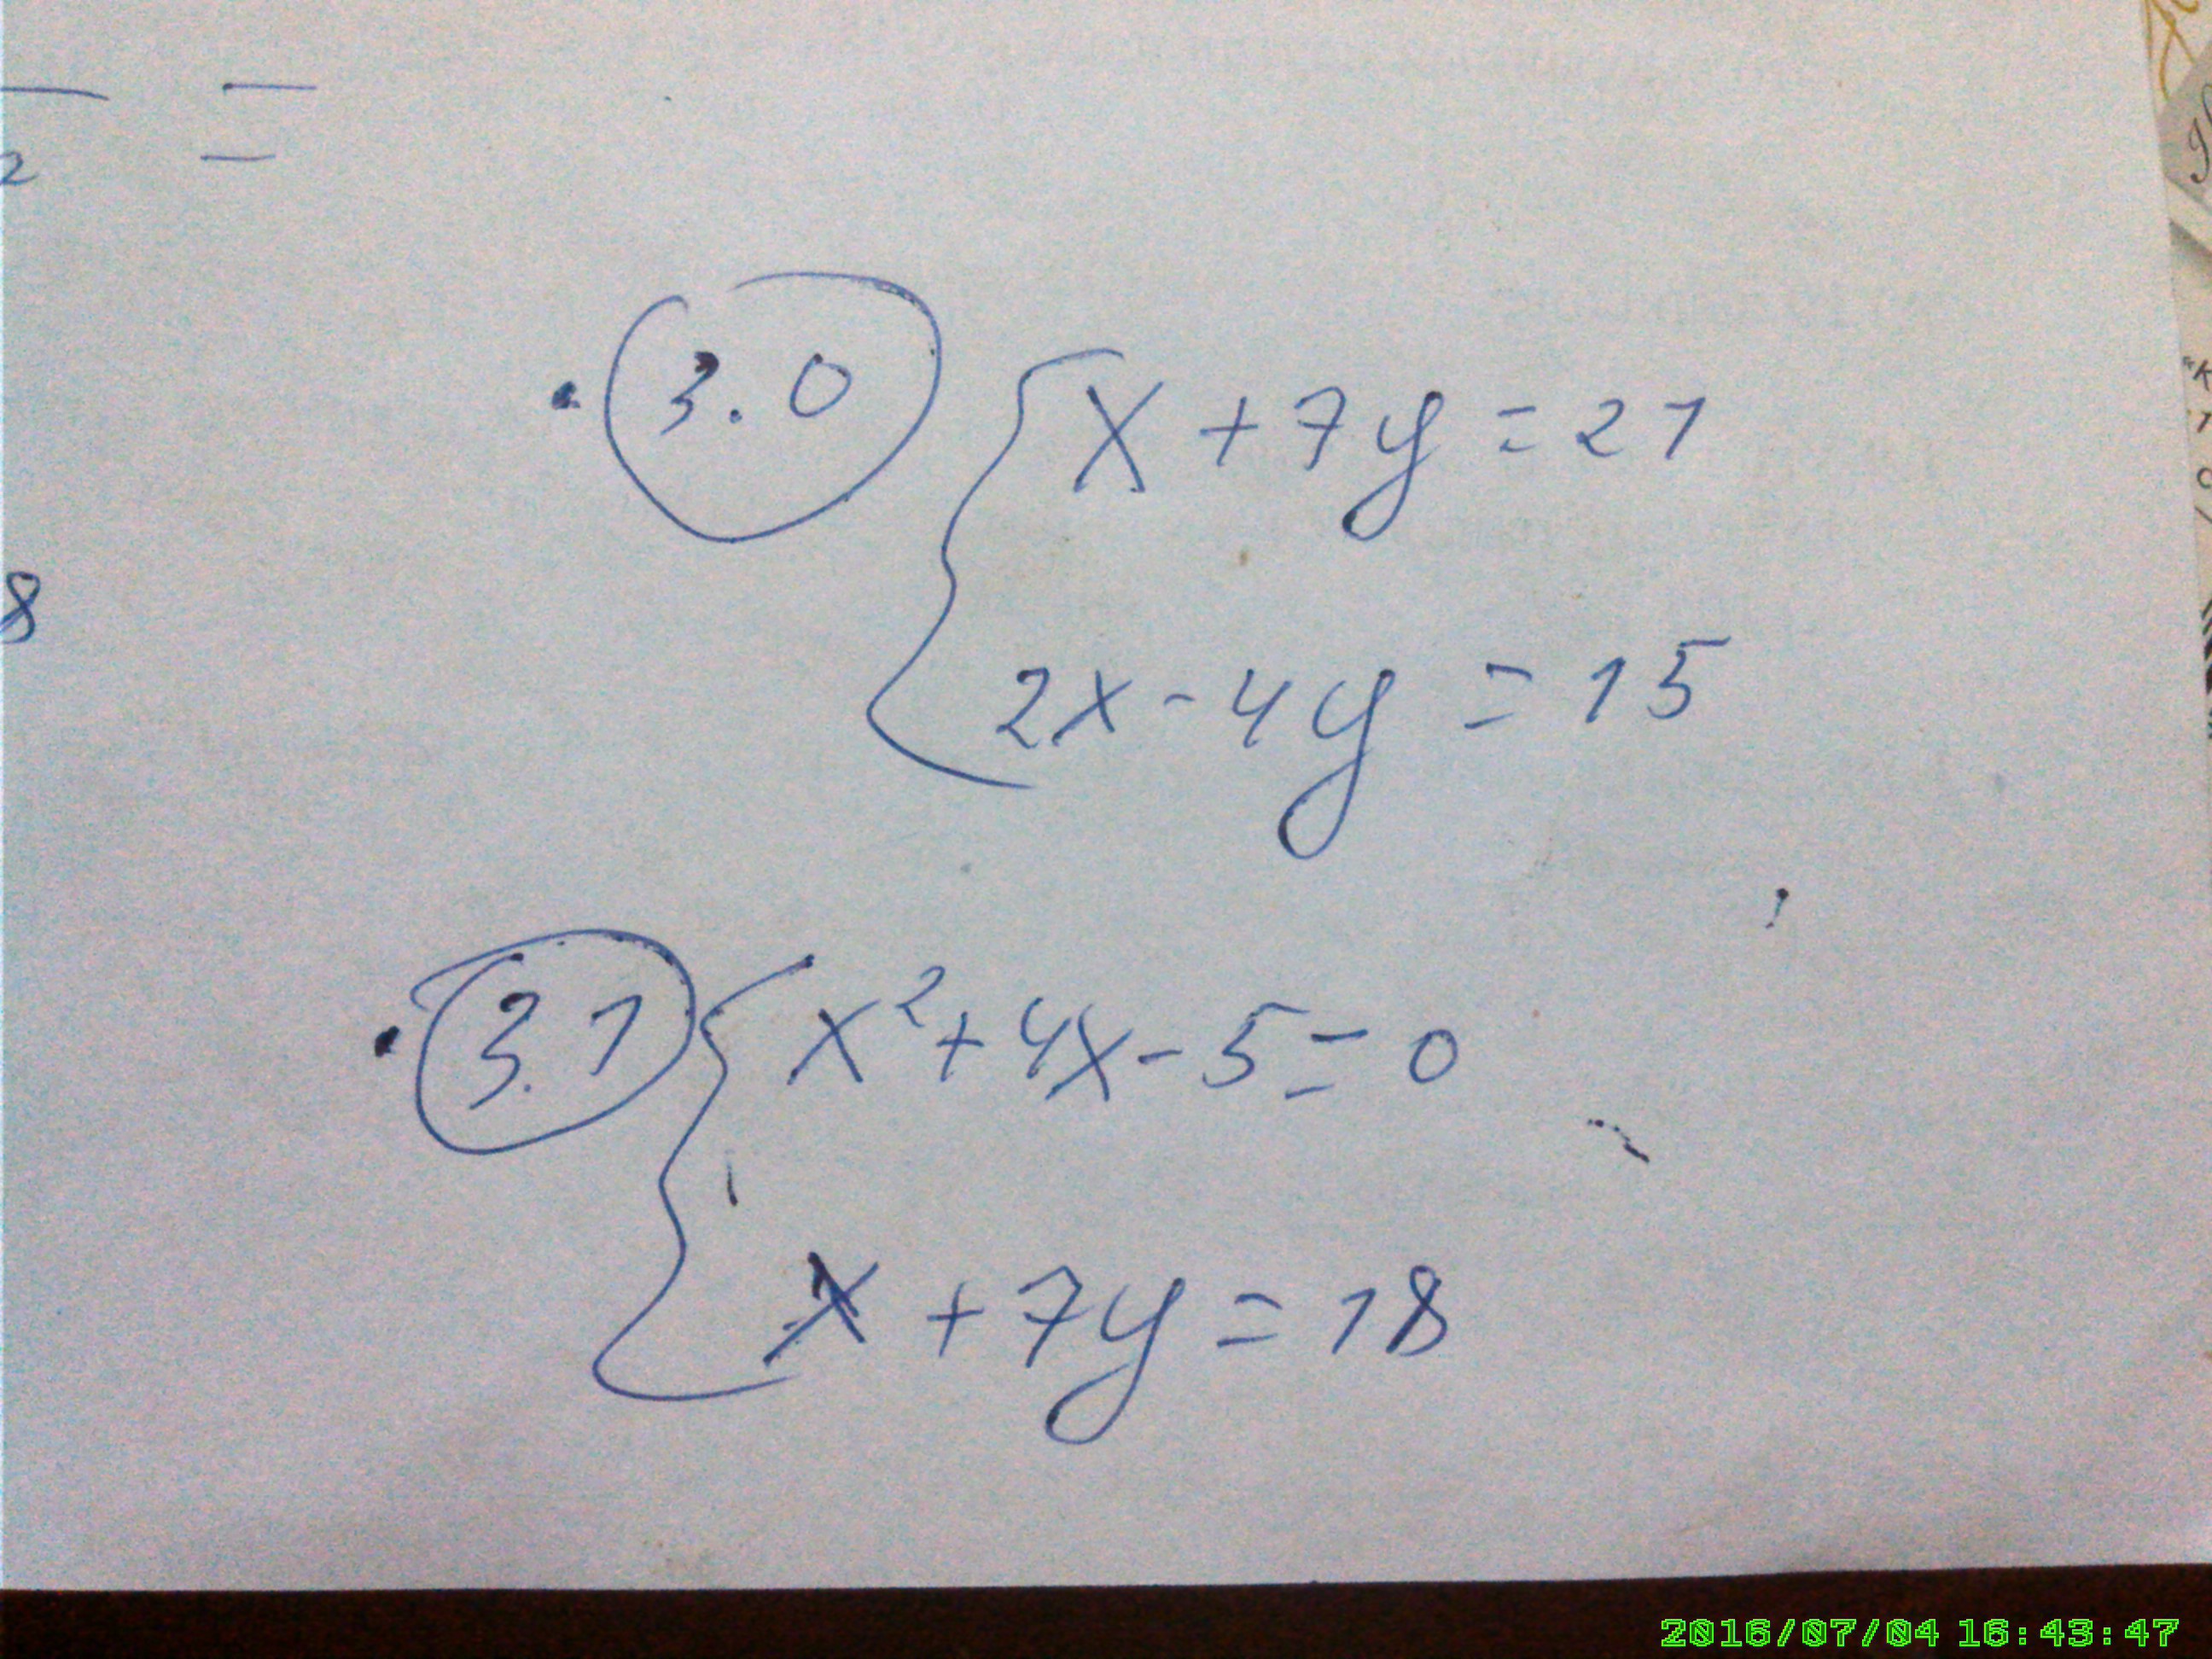 2 =
8
3.0
x + 7y = 21
2x - 4y = 15
3.1
x² + 4x - 5 = 0
x + 7y = 18
2016/07/04 16:43:47